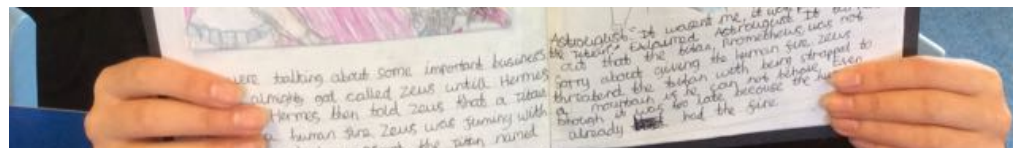 were talking about some important business
almighty god called Zeus untill Hermes
Hermes then told Zeus that a Titan
a human fire. Zeus was fuming with
the Titan named
Astrougist. "It wasent me, it
the Titan" Explained Astrougist. It
out that the titan, Prometheus was not
sorry about giving the human fire. Zeus
threatend the titan with being strapped to
a mountain if he can not behave. Even
though it was too late, because the
already had the fire